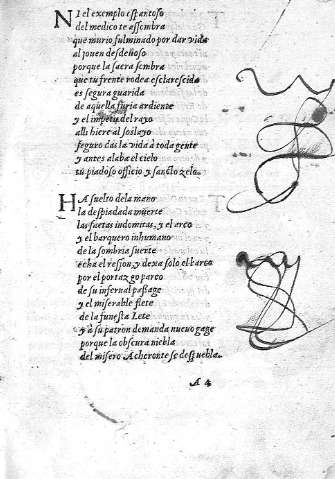 NI el exemplo espantoso
del medico te assombra
que murio fulminado por dar vida
al jouen desdeñoso
porque la sacra sombra
que tu frente rodea esclarescida
es segura guarida
de aquella furia ardiente
y el impetu del rayo
alli hiere al soslayo
seguro das la vida à toda gente
y antes alaba el cielo
tu piadoso officio y sancto zelo.
HA suelto dela mano
la despiadada muerte
las saetas indomitas, y el arco
y el barquero inhumano
de la sombria suerte
echa el resson, y dexa solo el barco
por el portazgo parco
de su infernal passage
y el miserable flete
de la funesta Lete
y a su patron demanda nueuo gage
porque la obscura niebla
del misero Acheronte se despuebla.
A 4